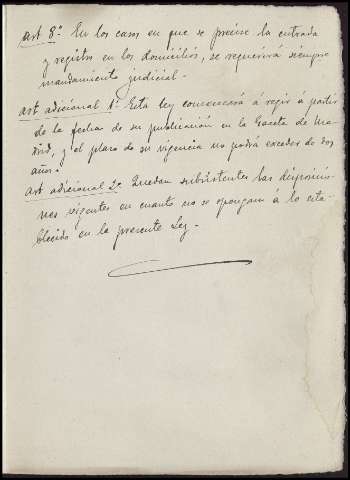 art 8º. En los casos en que se precise la entrada
y registro en los domicilios, se requerirá siempre
mandamiento judicial.-
art adicional 1º Esta ley comenzará á regir á partir
de la fecha de su publicación en la Gaceta de Ma-
drid, y el plazo de su vigencia no podrá exceder de dos
años.-
art adicional 2º Quedan subsistentes las disposicio-
nes vigentes en cuanto no se opongan á lo esta-
blecido en la presente Ley.-